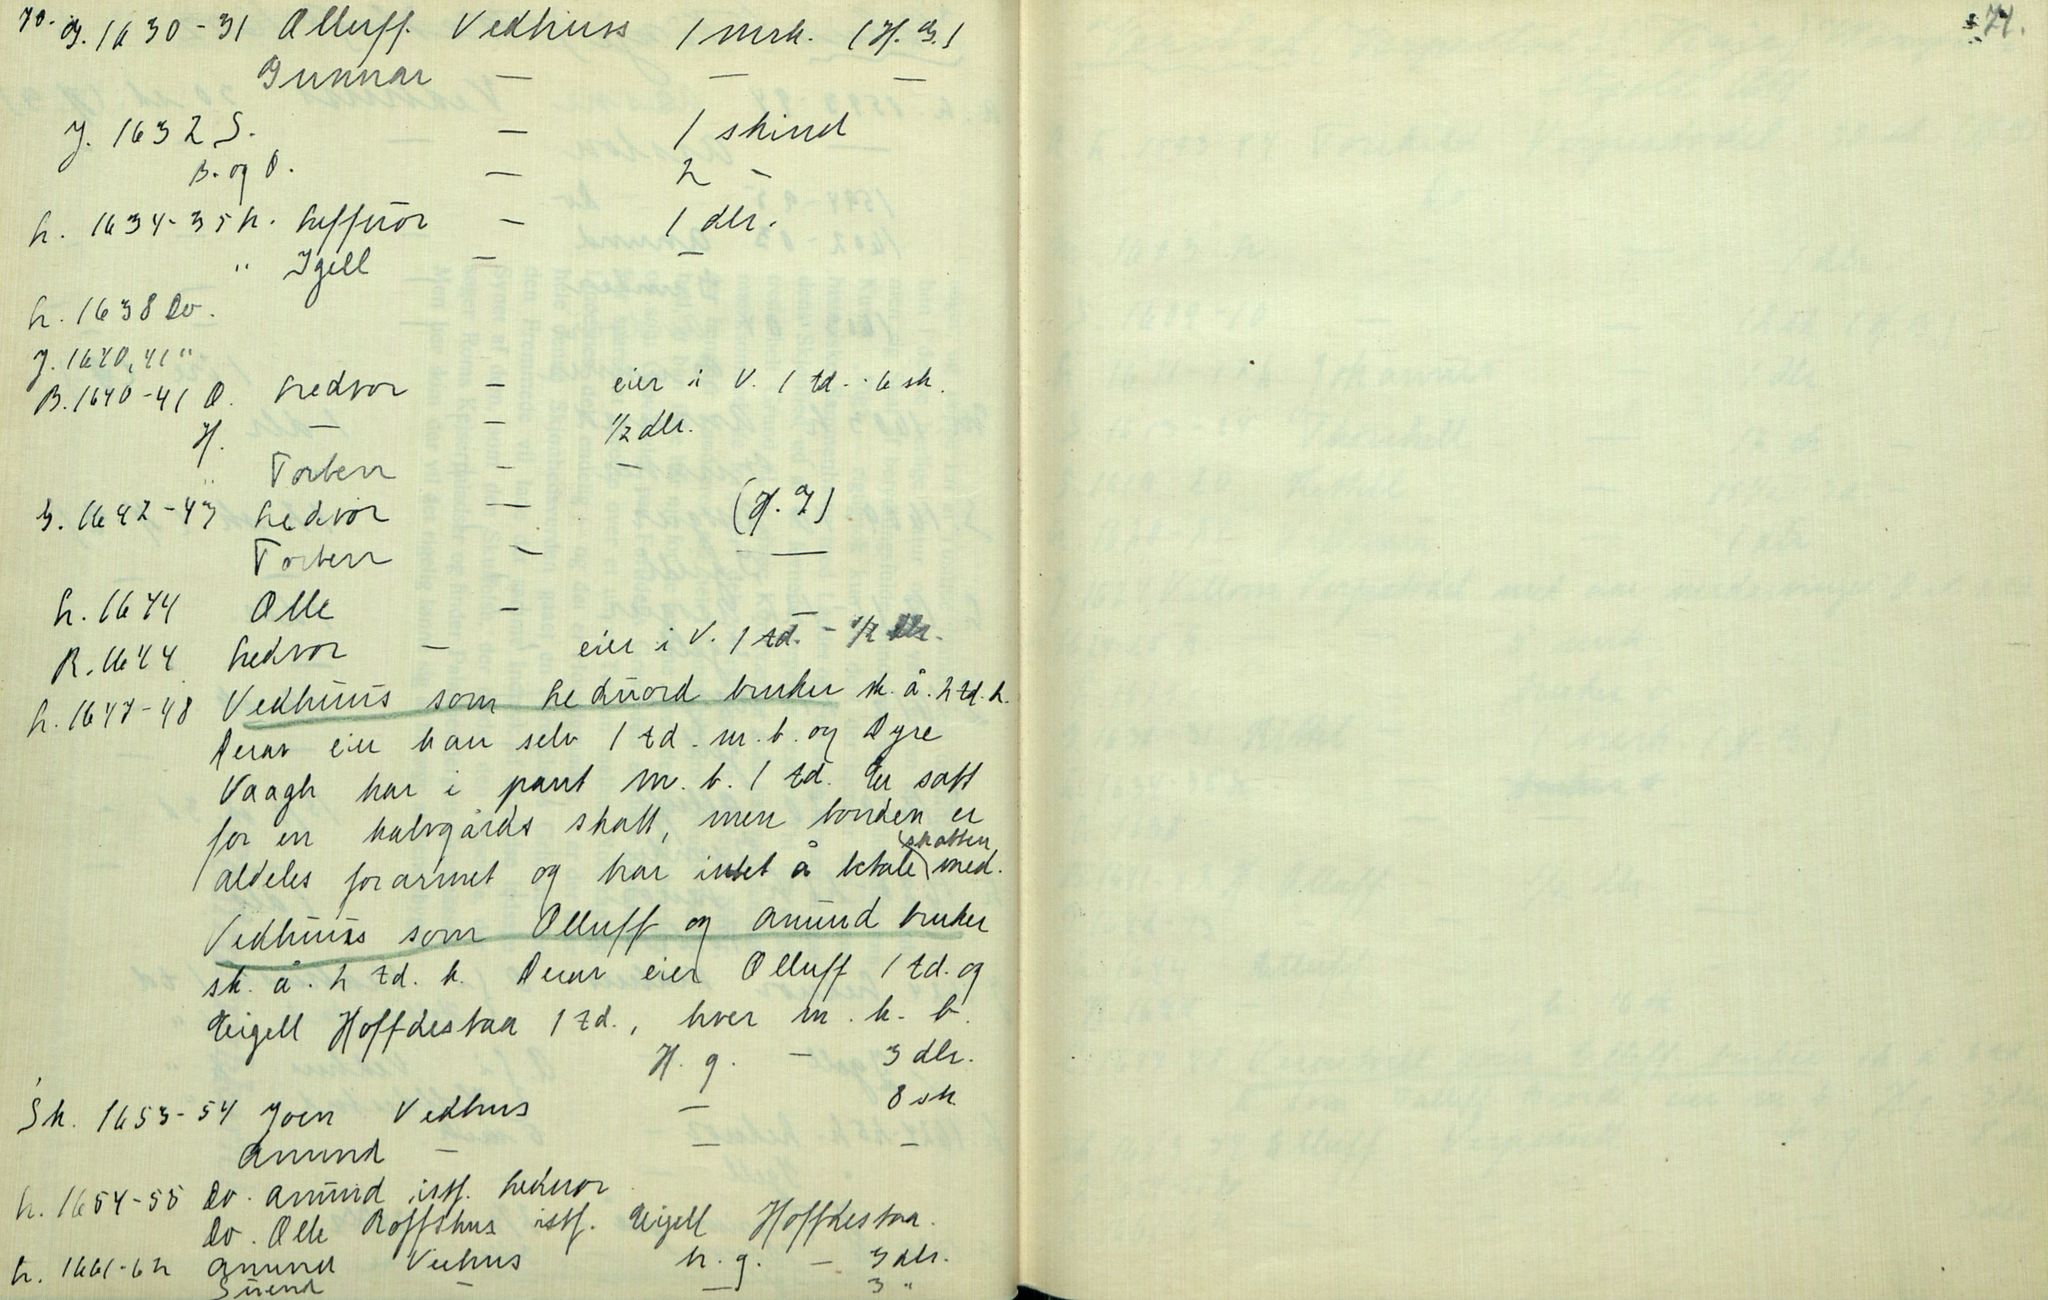 70. G. 1630-31 Olluff Vedhuus 1 mrk. (H. G.)
71.
Gunnar — — —
J. 1632 S. — 1 skind
B. og O. — 2 -
L. 1634-35 h. Leffuor — 1 dlr.
" Igell — —
L. 1638 Do.
J. 1640, 41 "
B. 1640-41 O. Ledvor — eier i V. 1 td. - 6 sk.
H. — — 1/2 dlr.
" Torben — —
S. 1642-43 Ledvor — (H. G)
Torben — —
L. 1644 Olle —
R. 1644 Ledvor — eier i V. 1 td. - 1/2
L. 1647-48 Vedhuus som Leduord bruker sk. å. 2 td. k.
Derav eier han selv 1 td. m. b. og Dyre
Vaagh har i pant m. b. 1 td. Er satt
for en halvgårds skatt, men bonden er
aldeles forarmet og har intet å betale (skatten) med.
Vedhuus som Olluff og Amund bruker
sk. å. 2 td. k. Derav eier Olluff 1 td. og
Eigell Hoffdestaa 1 td., hver m. k. b.
H. g. — 3 dlr.
Sk. 1653-54 Joen Vedhus — 8 sk
Amund — — —
L. 1654-55 Do. Amund istf. Leduor
Do. Olle Roffshus istf. Eigell Hoffdestaa.
L. 1661-62 Amund Veehus h. g. — 3 dlr.
Suend — — 3 "